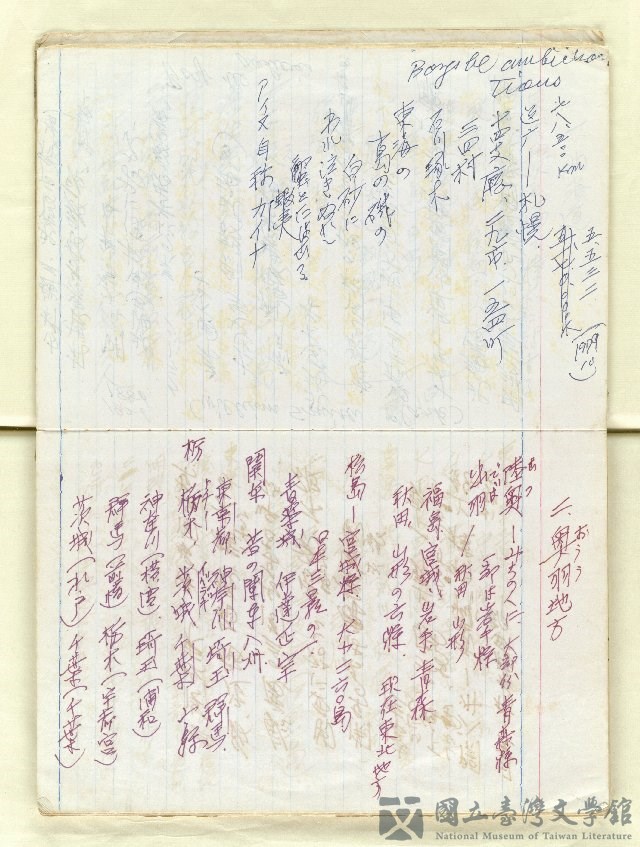 Boys be ambi
tious
七八.五〇〇 km
五.五三二
(1979
10)
道庁ー札幌.
十四支廳、二九市、一五四町
三四村
石川啄木
東海の
小島の磯の
白砂に
われ泣きぬれて
蟹とたはむる
蝦夷
アイヌ自称カイナ
二、奧羽地方
おうう
陸奧ー
大部份青森縣
一部は岩手縣
出羽ー秋田 山形
福島、宮城、岩手、青森
秋田、山形の六縣、現在東北地方
松島ー宮城縣、大小二六〇島
日本三景の一.
青葉城 伊達正宗
関東 昔の関東八州
東京都、神奈川、埼玉、群馬、
栃 栃木 茨城 千葉 六縣
神奈川(横浜)、埼玉(浦和)
群馬(前橋) 栃木(宇都宮)
茨城(水戸) 千葉(千葉)
國立臺灣文學館
National Museum of Taiwan Literature